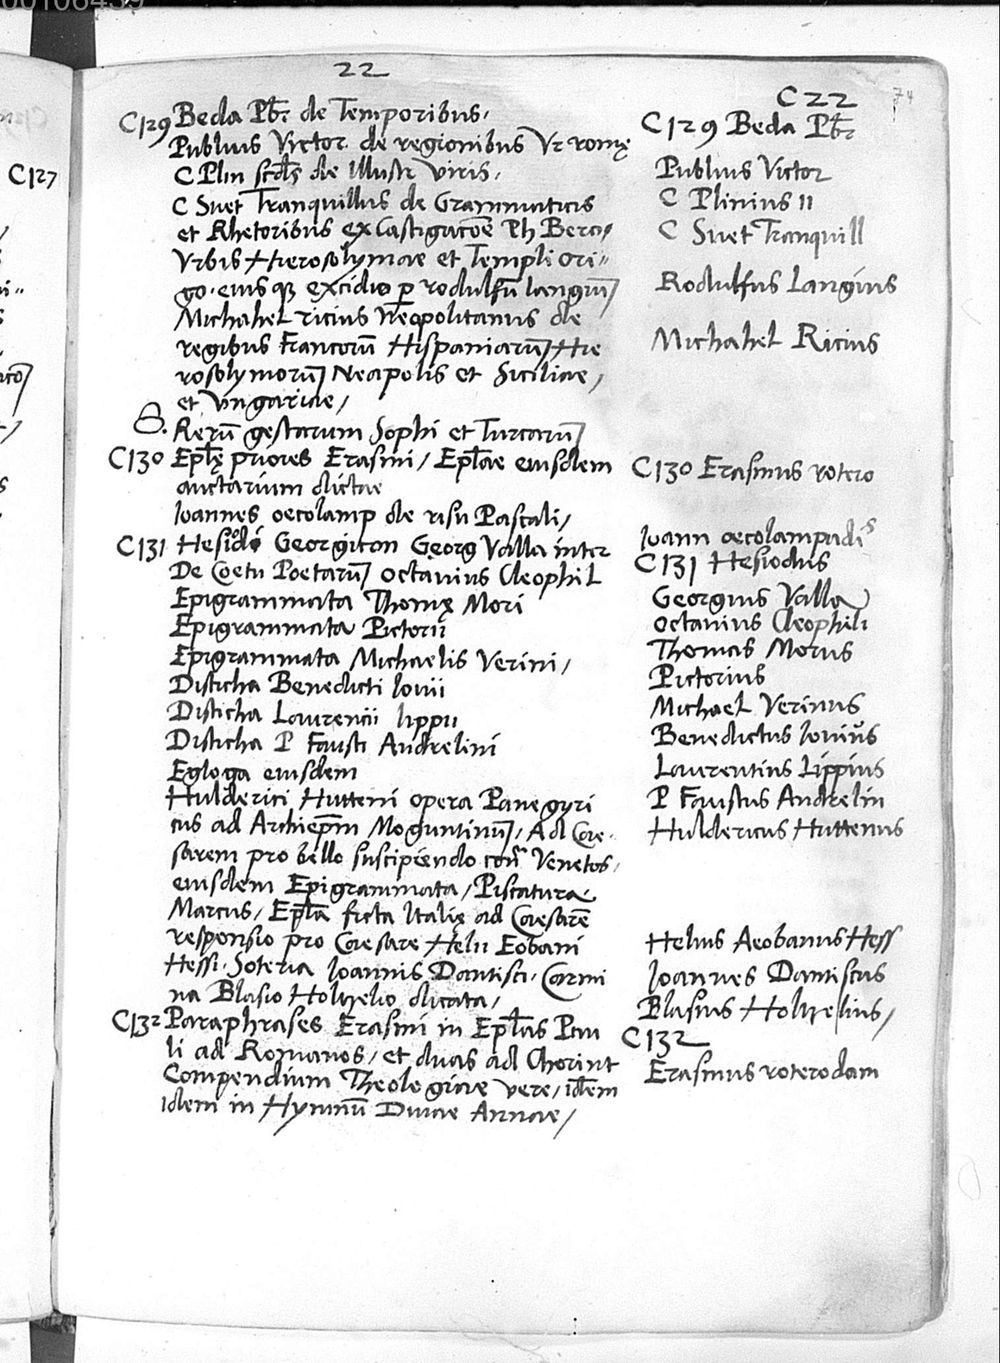 00106439
22
C22
74
C129 Beda Pbr de Temporibus.
Publius Victor de regionibus Vr romę
C Plin scds de illustr viris.
C Suet Tranquillus de Grammaticis
et Rhetoribus ex Castigacōe Ph Beroi
Vrbis Hierosolymae et Templi ori=
go. eiusq; excidio p rodulfū langiū
Michahel ricius Neapolitanus de
regibus Francorū Hispaniarū Hie
rosolymorū Neapolis et Siciliae,
et Vngariae,
S. Rerū gestarum Sophi et Turcarū
C130 Eplę priores Erasmi, Eplae eiusdem
auctarium dictae
Ioannes oecolamp de risu Pascali,
C131 Hesiodi Georgicon Georg Valla inter
De Coetu Poetarū Octavius Cleophil
Epigrammata Thomę Mori
Epigrammata Pictorii
Epigrammata Michaelis Verini,
Disticha Benedicti Iovii
Disticha Laurencii lippii
Disticha P Fausti Andrelini
Egloga eiusdem
Hulderici Hutteni opera Panegyri
cus ad Archiepm Moguntinū, Ad Cae
sarem pro bello suscipiendo contr Venetos,
eiusdem Epigrammata, Piscatura
Marcus, Epla ficta Italię ad Caesarē
responsio pro Caesare Helii Eobani
Hessi. Soteria Ioannis Dantisci. Carmi
na Blasio Holtzelio dicata,
C132 Paraphrases Erasmi in Eplas Pau
li ad Romanos, et duas ad Chorint
Compendium Theologiae vere, idem
idem in Hymnū Divae Annae,
C129 Beda Pbr
Publius Victor
C Plinius II
C Suet Tranquill
Rodulfus Langius
Michahel Ricius
C130 Erasmus rotero
Ioann oecolampadis
C131 Hesiodus
Georgius Valla
Octavius Cleophili
Thomas Morus
Pictorius
Michael Verinus
Benedictus Iovius
Laurentius Lippius
P Faustus Andrelin
Huldericus Huttenus
Helius Aeobanus Hess
Ioannes Dantiscus
Blasius Holtzelius,
C132
Erasmus roterodam
C127